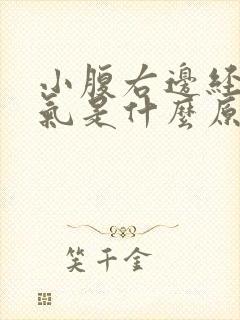 小腹右邊経
氣是什麼原
笑千金